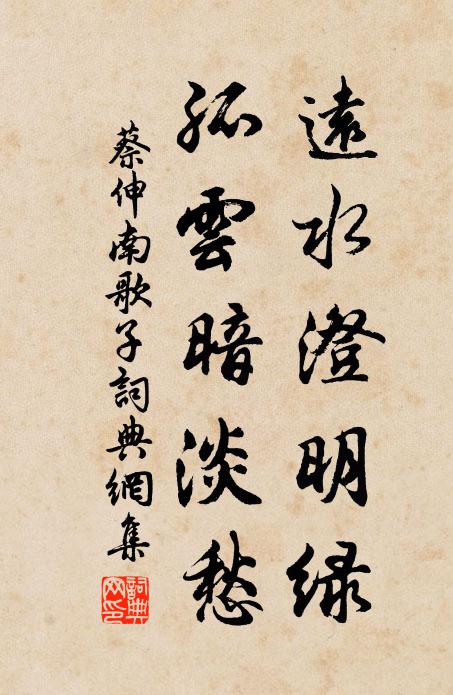 遠水澄明緑
孤雲暗淡愁
蔡伸南歌子詞典網集
詞典網印